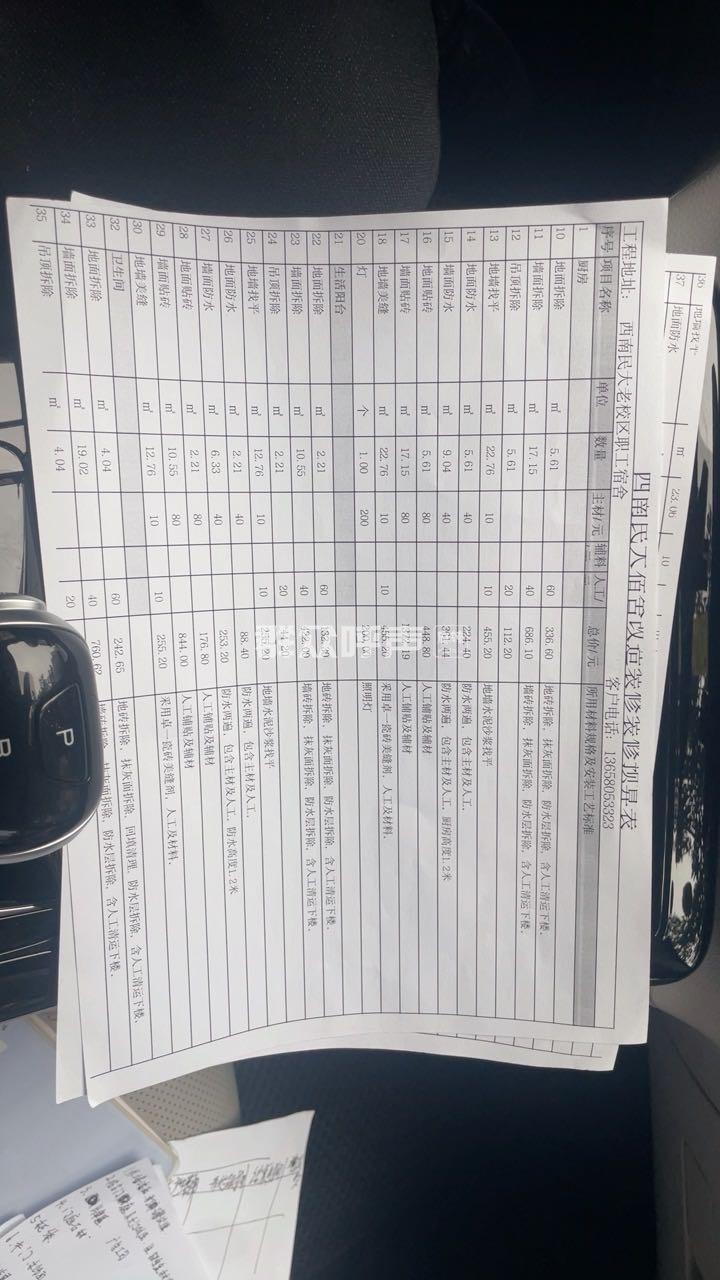 西南民大宿舍改造装修装修预算表
工程地址： 西南民大老校区职工宿舍 客户电话：13658053323
序号 项目名称 单位 数量 主材/元 辅料 人工/ 总价/元 所用材料规格及安装工艺标准
1 厨房
10 地面拆除 ㎡ 5.61 60 336.60 地砖拆除，抹灰面拆除，防水层拆除，含人工清运下楼。
11 墙面拆除 ㎡ 17.15 40 686.10 墙砖拆除，抹灰面拆除，防水层拆除，含人工清运下楼。
12 吊顶拆除 ㎡ 5.61 20 112.20
13 地墙找平 ㎡ 22.76 10 10 455.20 地墙水泥沙浆找平
14 地面防水 ㎡ 5.61 40 224.40 防水两遍，包含主材及人工。
15 墙面防水 ㎡ 9.04 40 361.44 防水两遍，包含主材及人工，厨房高度1.2米
16 地面贴砖 ㎡ 5.61 80 448.80 人工铺贴及辅材
17 墙面贴砖 ㎡ 17.15 80 人工铺贴及辅材
18 地墙美缝 ㎡ 22.76 10 10 455.20 采用卓一瓷砖美缝剂，人工及材料。
20 灯 个 1.00 200 照明灯
21 生活阳台
22 地面拆除 ㎡ 2.21 60 地砖拆除，抹灰面拆除，防水层拆除，含人工清运下楼。
23 墙面拆除 ㎡ 10.55 40 墙砖拆除，抹灰面拆除，防水层拆除，含人工清运下楼。
24 吊顶拆除 ㎡ 2.21 20 44.20
25 地墙找平 ㎡ 12.76 10 10 地墙水泥沙浆找平
26 地面防水 ㎡ 2.21 40 88.40 防水两遍，包含主材及人工。
27 墙面防水 ㎡ 6.33 40 253.20 防水两遍，包含主材及人工，防水高度1.2米
28 地面贴砖 ㎡ 2.21 80 176.80 人工铺贴及辅材
29 墙面贴砖 ㎡ 10.55 80 844.00 人工铺贴及辅材
30 地墙美缝 ㎡ 12.76 10 10 255.20 采用卓一瓷砖美缝剂，人工及材料。
32 卫生间
33 地面拆除 ㎡ 4.04 60 242.65 地砖拆除，抹灰面拆除，回填清理，防水层拆除，含人工清运下楼。
34 墙面拆除 ㎡ 19.02 40 760.62 墙砖拆除，抹灰面拆除，防水层拆除，含人工清运下楼。
35 吊顶拆除 ㎡ 4.04 20
36 地墙找平 ㎡ 23.06 10
37 地面防水
P
R